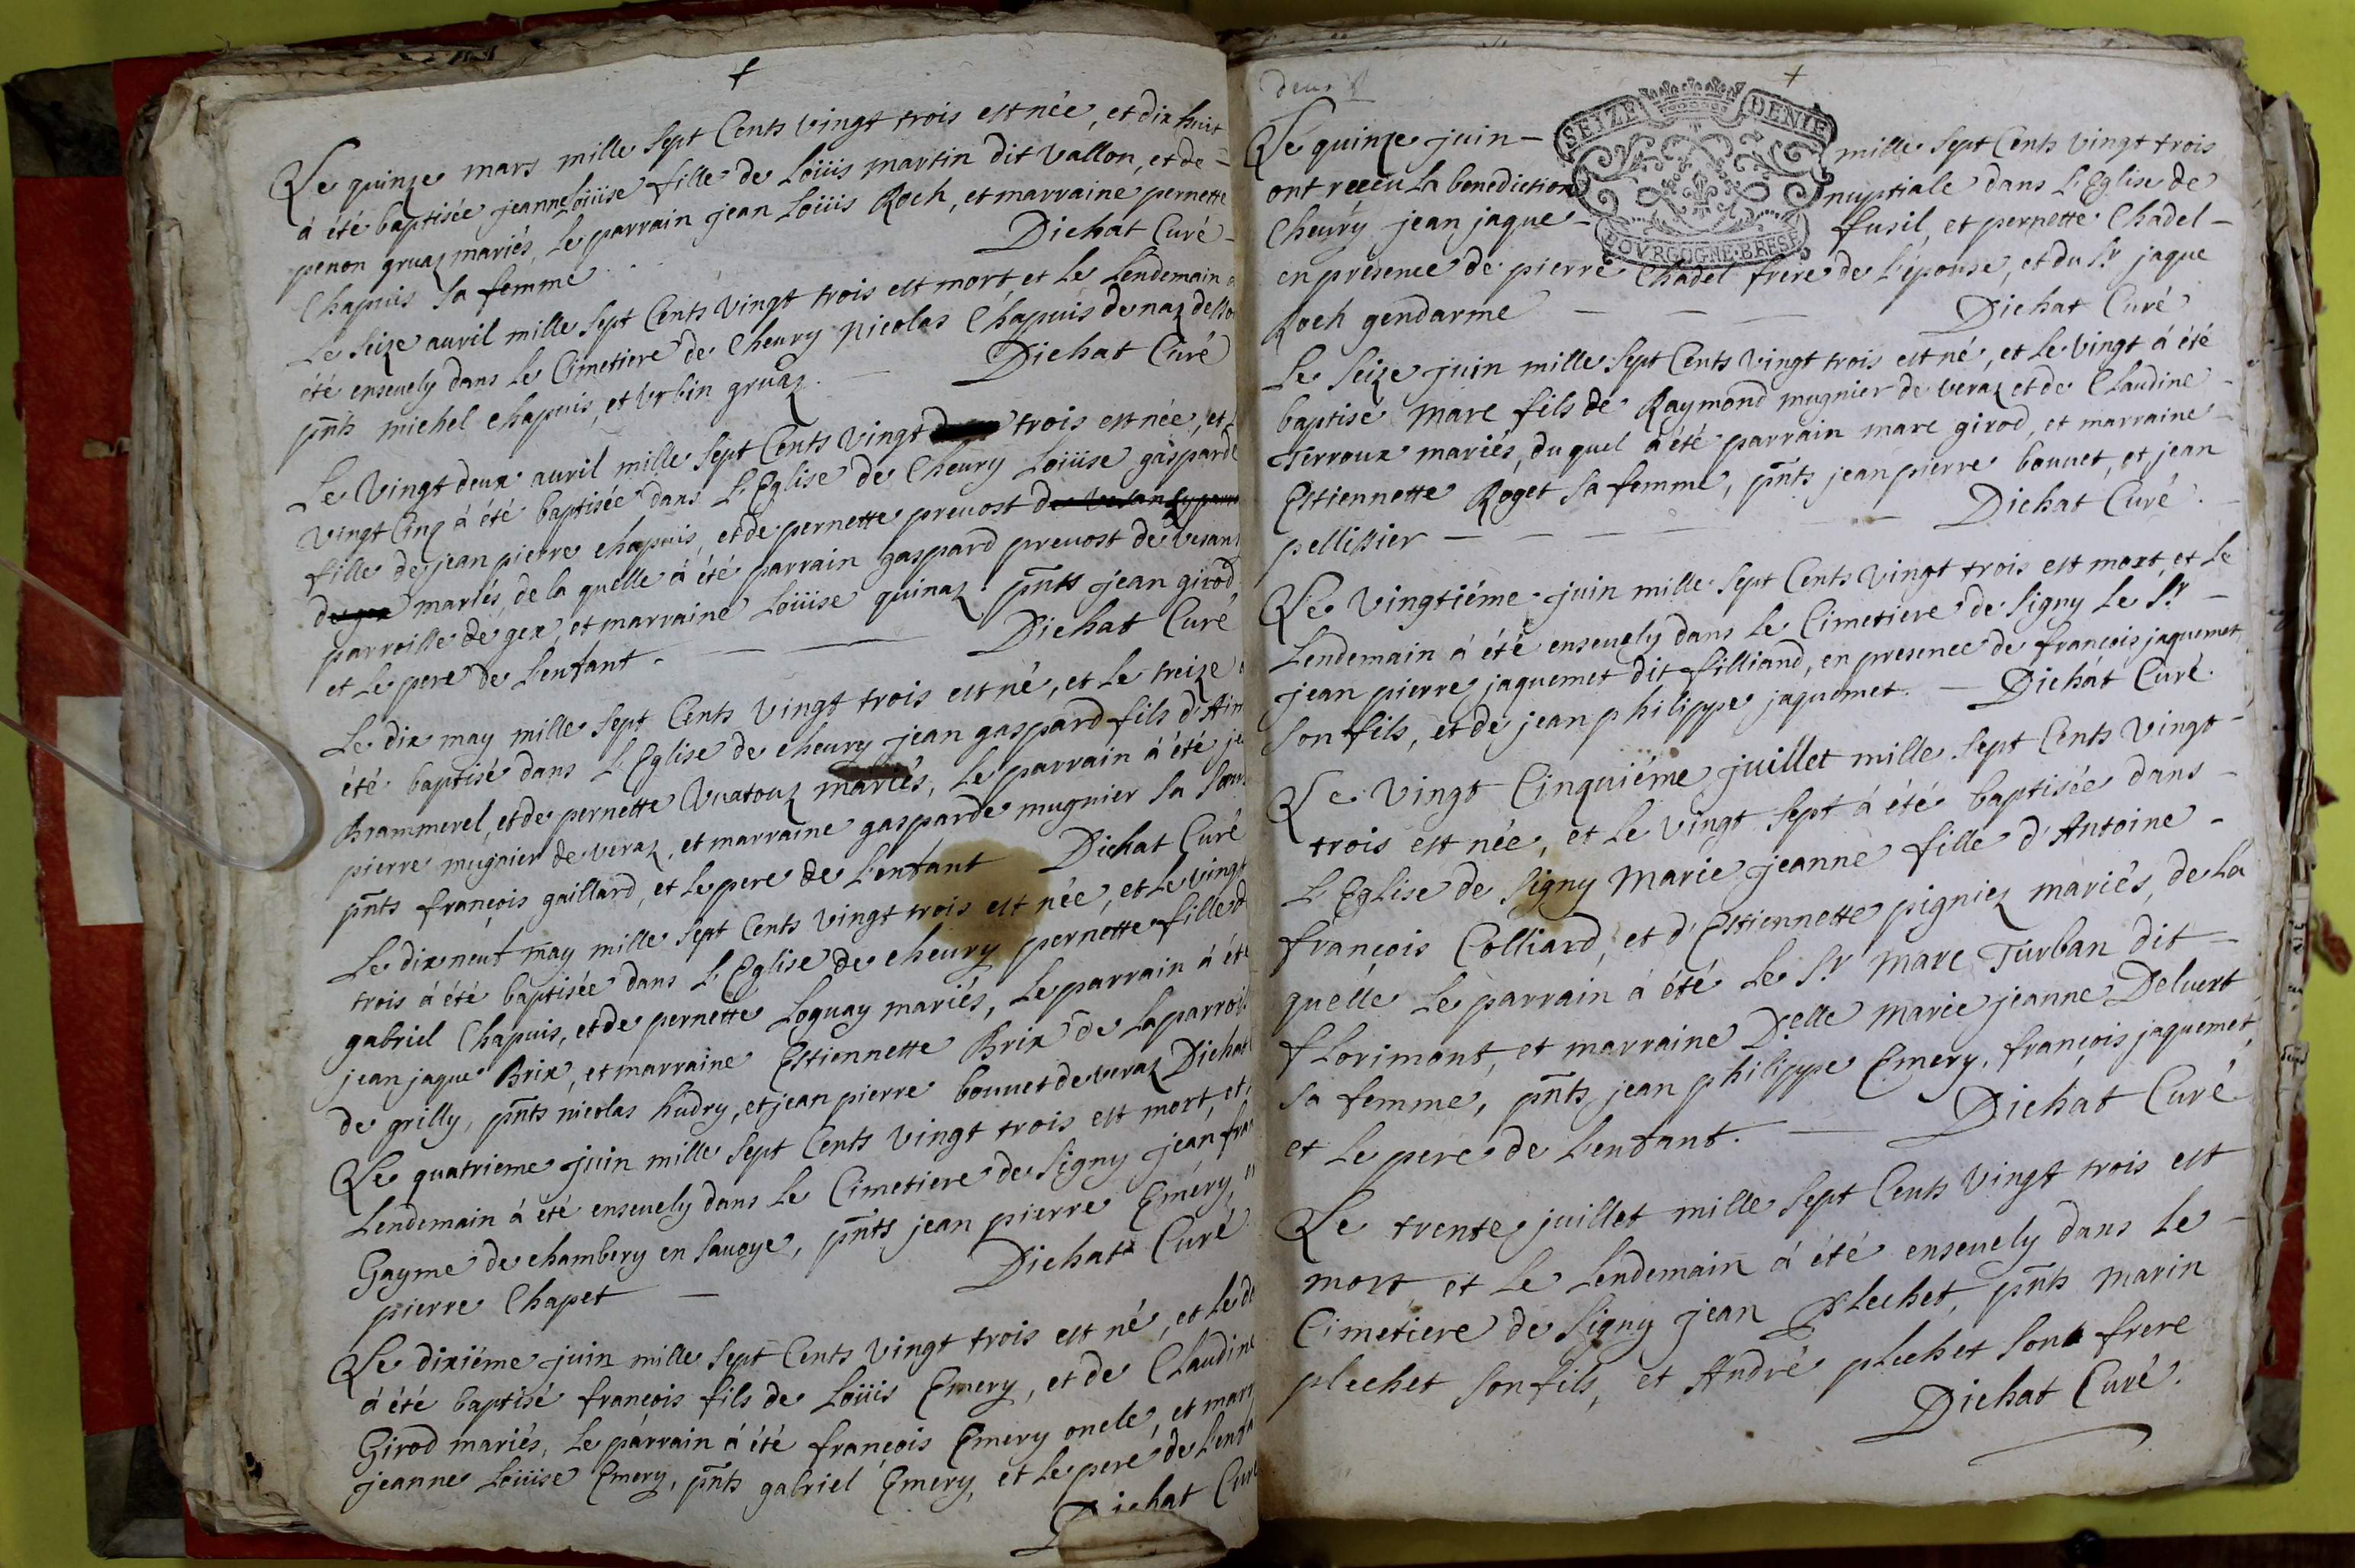 Le quinze mars mille sept Cents vingt trois est née, et dix huit
à été baptisée jeanne Loüise fille de Loüis martin dit vallon, et de -
penon gruaz mariés, le parrain jean Loüis Roch, et marraine pernette
Chapuis sa femme. Dichat Curé -
Le seize auril mille sept Cents vingt trois est mort et le Lendemain a
été enseuely dans le Cimetiere de Cheury Nicolas Chapuis de naz desso
pñts michel chapuis, et Vrbin gruaz. - Dichat Curé
Le vingt deux auril mille sept Cents vingt trois est née, et
vingt Cinq à été baptisée dans L'Eglise de Cheury Loüise gasparde
fille de jean pierre chapuis, et de pernette preuost
mariés, de la quelle à été parrain gaspard preuost de vesan
parroisse de gex, et marraine Loüise quinaz. pñts jean girod,
et le pere de L'enfant. - - Dichat Curé
Le dix may mille sept Cents vingt trois est né, et le treize a
été baptisé dans L'Eglise de cheury jean gaspard fils d'Aim
Brammerel, et de pernette Vuatouz mariés, le parrain à été je
pierre mugnier de veraz, et marraine gasparde mugnier sa soeur
pñts françois gaillard, et le pere de L'enfant Dichat Curé
Le dix neuf may mille sept Cents vingt trois est née, et le vingt
trois à été baptisée dans L'Eglise de cheury pernette fille d
gabriel Chapuis, et de pernette Loquay mariés, le parrain à été
jean jaque Brix, et marraine Estiennette Brix de la parroi
de grilly, pñts nicolas hudry, et jean pierre bouuet de veraz Dichat
Le quatrieme juin mille sept Cents vingt trois est mort, et
Lendemain à été enseuely dans le Cimetiere de Signy jean fra
Gayme de chambery en Sauoye, pñts jean pierre Emery,
pierre Chapet - Dichat Curé
Le dixiéme juin mille sept Cents vingt trois est né, et le d
à été baptisé françois fils de Loüis Emery, et de Claudine
Girod mariés, le parrain à été françois Emery oncle, et marr
jeanne Loüise Emery, pñts gabriel Emery, et le pere de L'enfa
Dichat Curé
deux
SEIZE DENIE
BOVRGOGNE·BRESE
Le quinze juin - mille sept Cents vingt trois
ont receu la benediction nuptiale dans L'Eglise de
Cheury jean jaque - fusil, et pernette Chadel -
en presence de pierre Chadel frere de L'épouse, et du Sr jaque
Roch gendarme - - - Dichat Curé
Le seize juin mille sept Cents vingt trois est né, et le vingt à été
baptisé Marc fils de Raymond mugnier de veraz et de Claudine -
Terroux mariés, du quel à été parrain marc girod, et marraine -
Estiennette Roget sa femme, pñts jean pierre bouuet, et jean
pellissier - - - - - Dichat Curé. -
Le vingtiéme juin mille sept Cents vingt trois est mort, et le
Lendemain à été enseuely dans le Cimetiere de Signy le Sr -
jean pierre jaquemet dit filliand, en presence de françois jaquemet
son fils, et de jean philippe jaquemet. - Dichat Curé.
Le vingt Cinquiéme juillet mille sept Cents vingt -
trois est née, et le vingt sept à été baptisée dans -
L'Eglise de Signy Marie jeanne fille d'Antoine -
françois Colliard, et d'Estiennette pigniez mariés, de la
quelle le parrain à été le Sr Marc Turban dit -
fLorimont, et marraine Delle Marie jeanne Deluert
sa femme, pñts jean philippe Emery, françois jaquemet,
et le pere de L'enfant. - Dichat Curé
Le trente juillet mille sept Cents vingt trois est
mort et le Lendemain à été enseuely dans le -
Cimetiere de Signy jean plechet, pñts Marin
plechet son fils, et André plechet son frere
Dichat Curé.